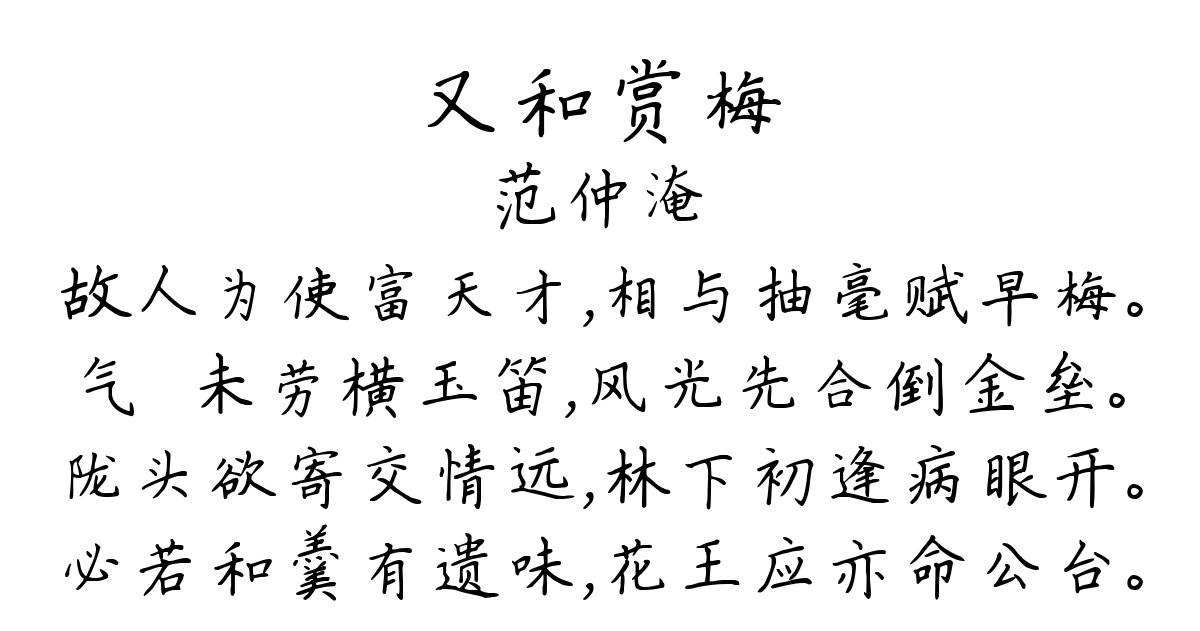 又和赏梅
范仲淹
故人为使富天才,相与抽毫赋早梅。
气 未劳横玉笛,风光先合倒金垒。
陇头欲寄交情远,林下初逢病眼开。
必若和羹有遗味,花王应亦命公台。